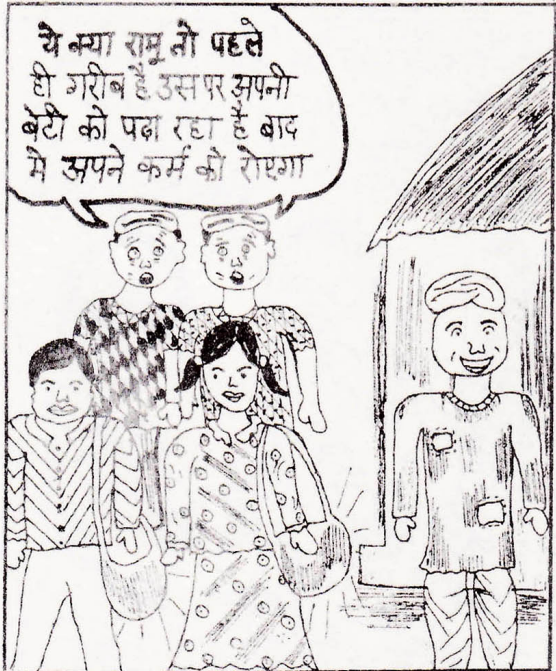 ये क्या रामू तो पहले
ही गरीब है उस पर अपनी
बेटी को पढा रहा है बाद
मे अपने कर्म को रोएगा